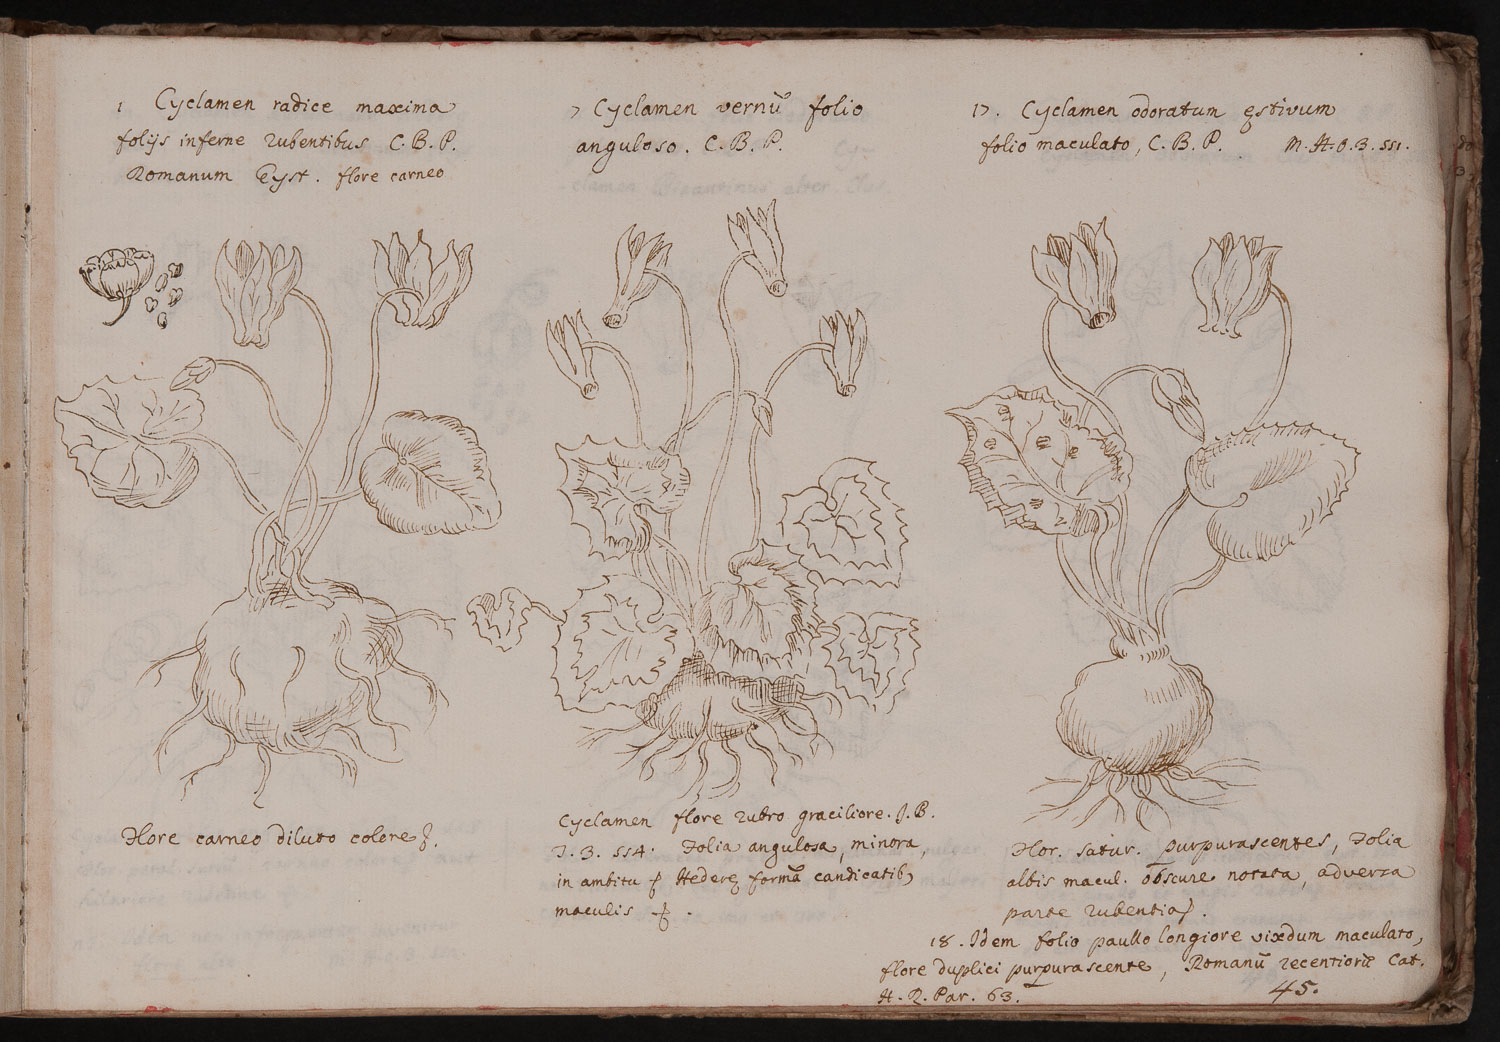 1 Cyclamen radice maxima
folijs inferne rubentibus C.B.P.
Romanum Eyst. flore carneo
7 Cyclamen vernū folio
anguloso. C.B.P.
17. Cyclamen odoratum ęstivum
folio maculato, C.B.P. M.H.O.3.551.
Flore carneo diluto colore
Cyclamen flore rubro graciliore. J.B.
T.3.554. Folia angulosa, minora,
in ambitu Hederę formā candicatib9
maculis
Flor. satur. purpurascentes, Folia
albis macul. obscure notata, adversa
parte rubentia
18. Idem folio paullo longiore vixdum maculato,
flore duplici purpurascente, Romanū recentiorū Cat.
H.R.Par. 63.
45.